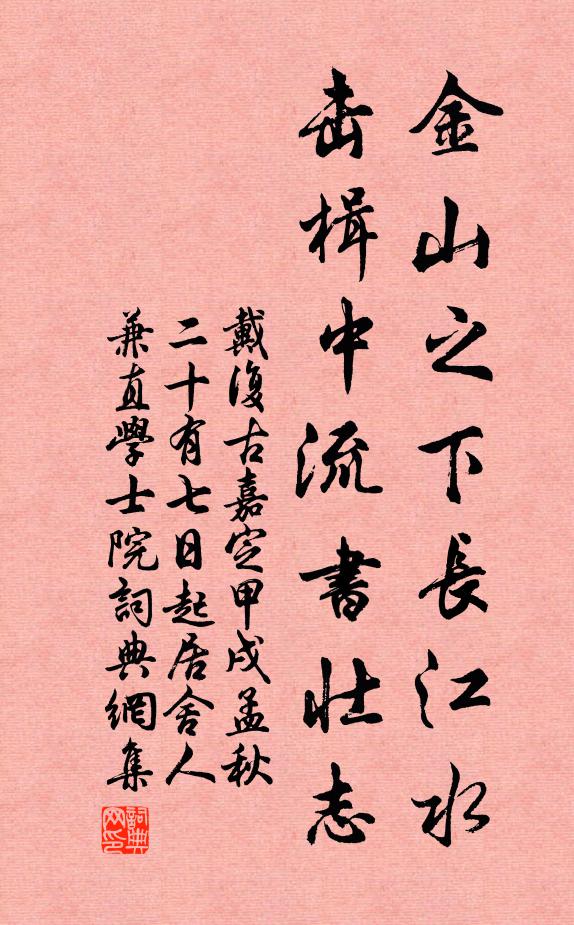 金山之下長江水
击楫中流書壮志
戴復古嘉定甲戌孟秋
二十有七日起居舍人
兼直學士院詞典網集
詞典网印